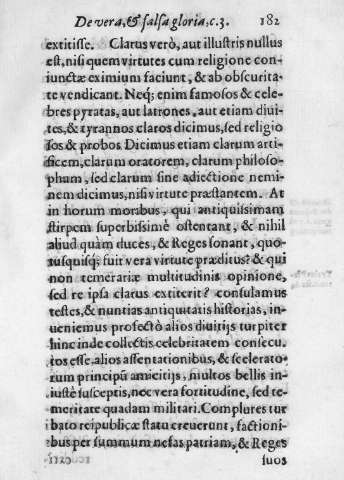 De vera, & falsa gloria, c. 3. 182
extitisse. Clarus verò, aut illustris nullus
est, nisi quem virtutes cum religione con-
iunctæ eximium faciunt, & ab obscurita-
te vendicant. Neq; enim famosos & cele-
bres pyratas, aut latrones, aut etiam diui-
tes, & tyrannos claros dicimus, sed religio
sos & probos. Dicimus etiam clarum arti-
ficem, clarum oratorem, clarum philoso-
phum, sed clarum sine adiectione nemi-
nem dicimus, nisi virtute præstantem. At
in horum moribus, qui antiquissimam
stirpem superbissimè ostentant, & nihil
aliud quàm duces, & Reges sonant, quo-
tusquisq; fuit vera virtute præditus? & qui
non temerariæ multitudinis opinione,
sed re ipsa clarus extiterit? consulamus
testes, & nuntias antiquitatis historias, in-
ueniemus profectò alios diuitijs turpiter
hinc inde collectis celebritatem consecu-
tos esse, alios assentationibus, & scelerato-
rum principũ amicitijs, multos bellis in-
iustè susceptis, nec vera fortitudine, sed te-
meritate quadam militari. Complures tur
bato reipublicæ statu creuerunt, factioni-
bus per summum nefas patriam, & Reges
suos